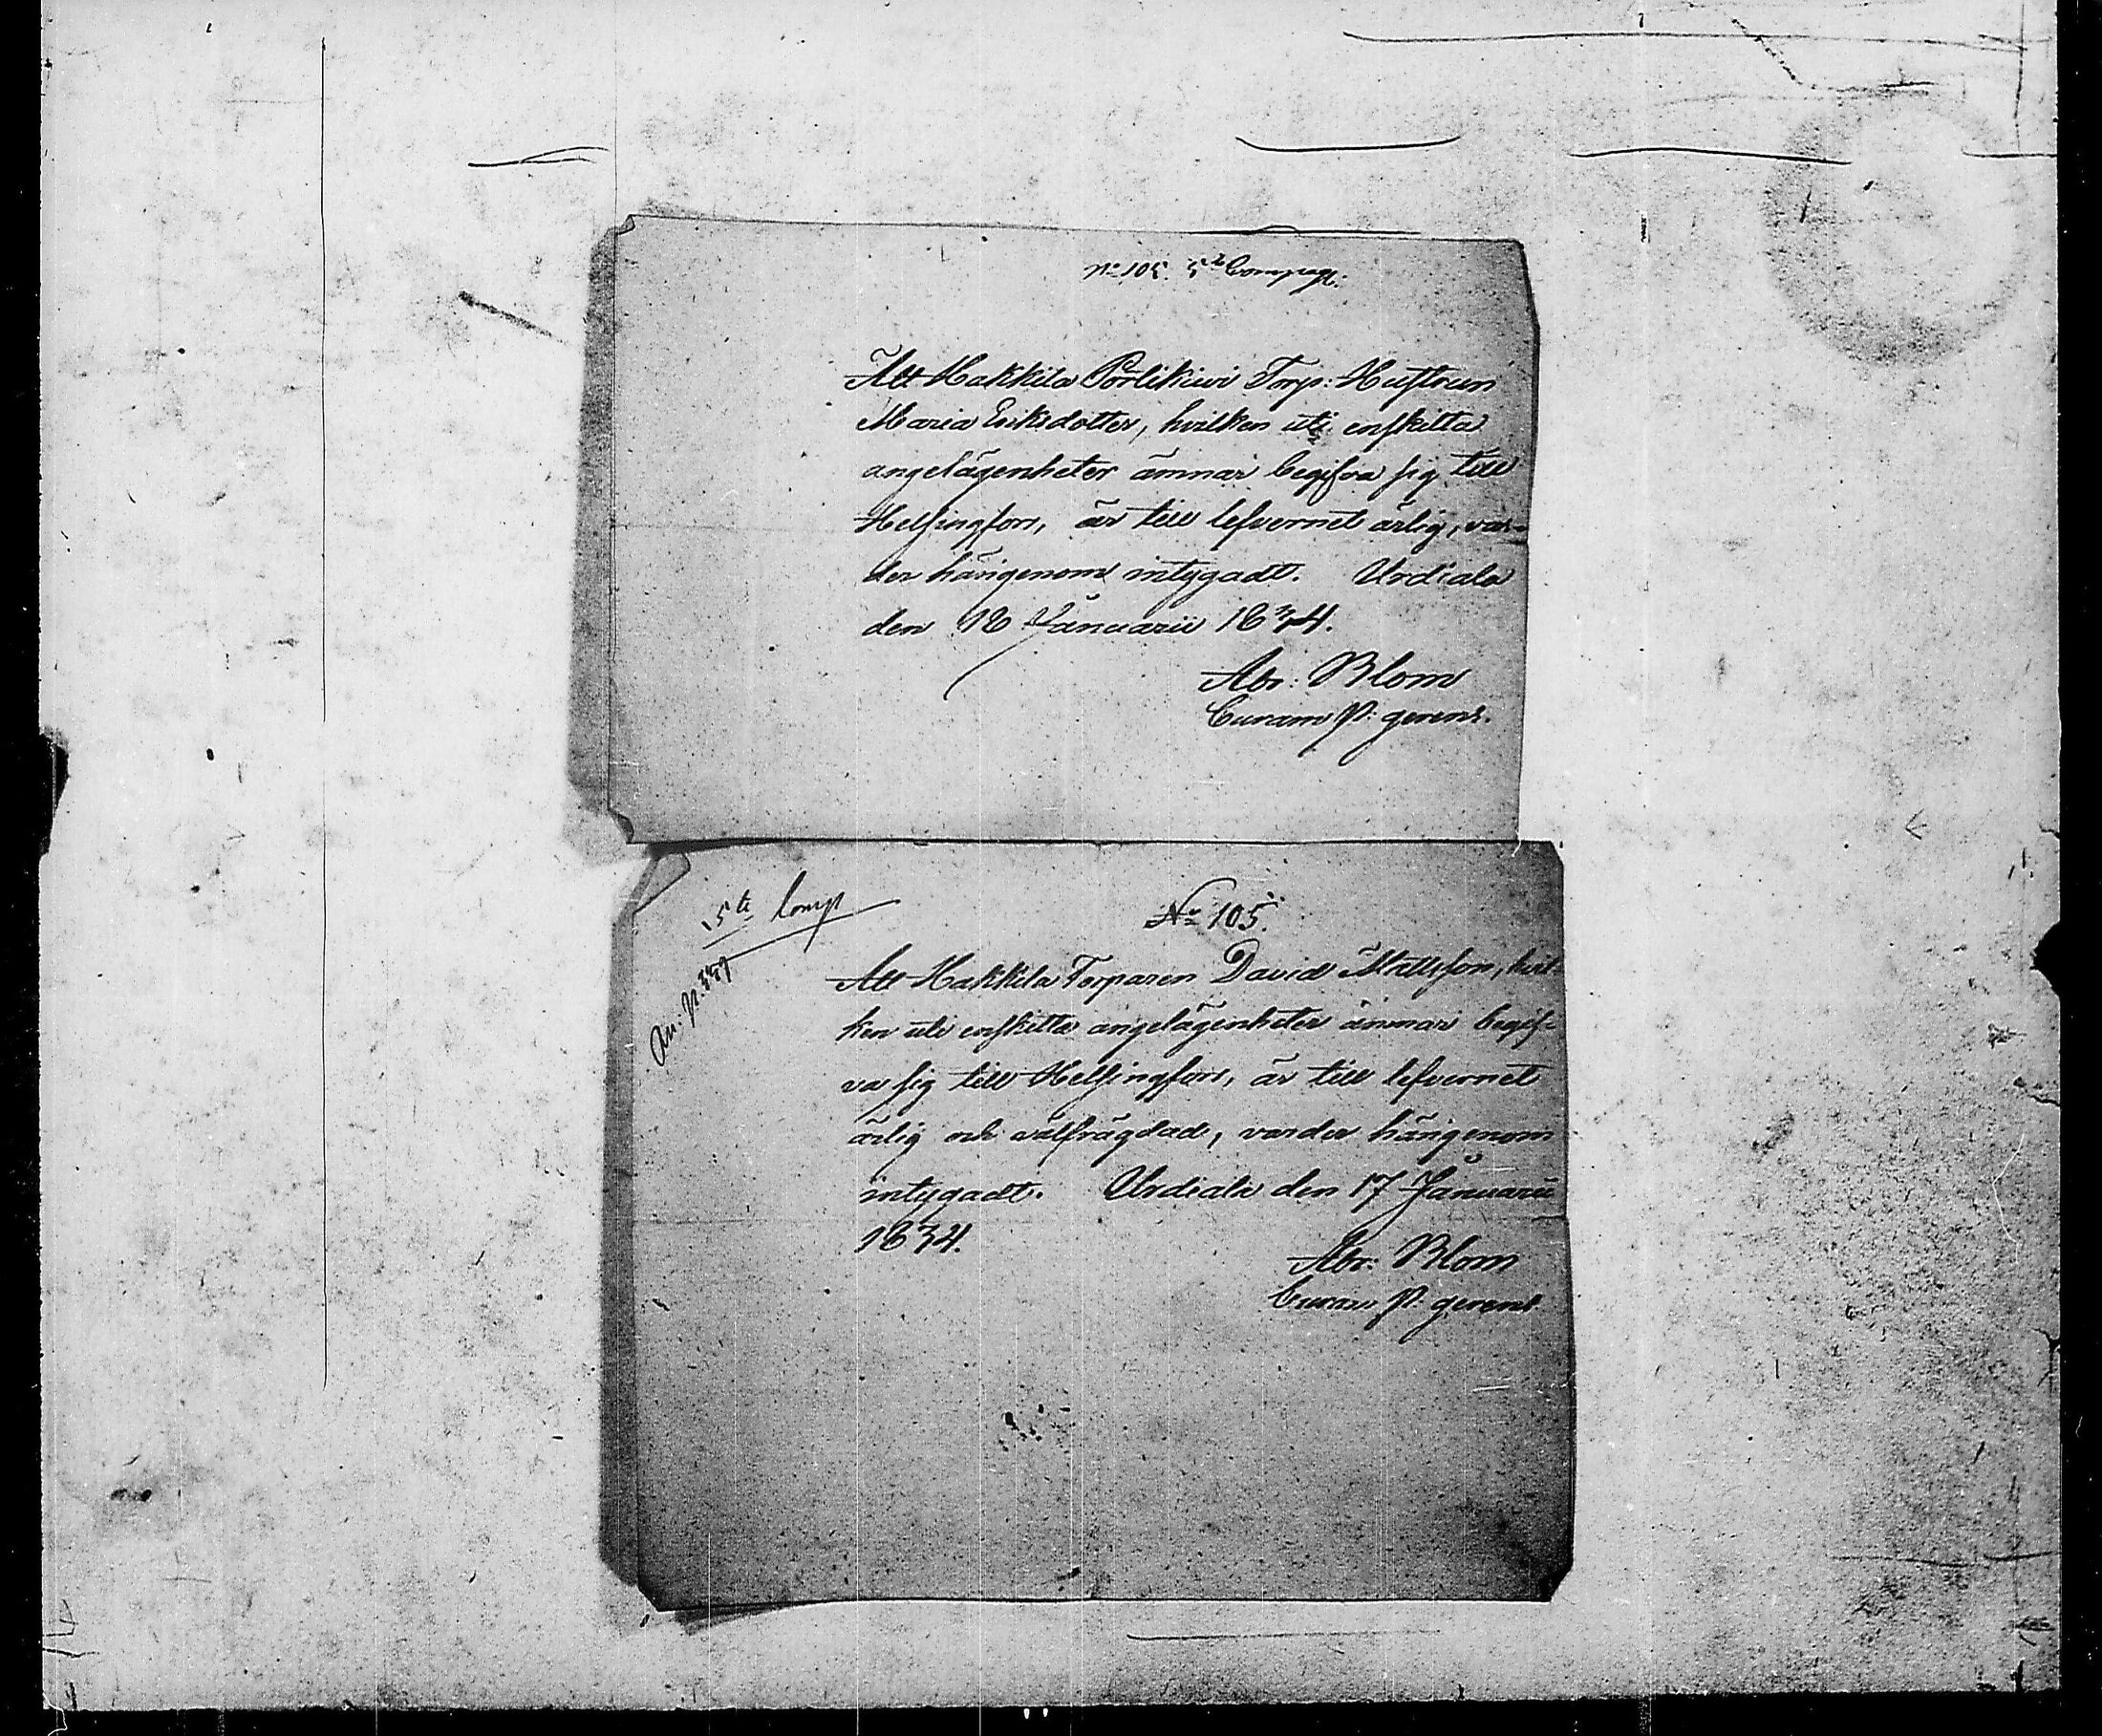 No 105. 5te Compagt.
Att Hakkila Porlikivi Torp: Hustrun
Maria Eriksdotter, hvilken uti enskilta
angelägenheter ämnar begifva sig till
Helsingfors, är till lefvernet ärlig, var-
der härigenom intygadt. Urdiala
den 18 Januarii 1834.
Abr: Blom
Curam P: gerens.
5te Comp
No 105.
Att Hakkila Torparen David Mattsson, hvil-
ken uti enskilta angelägenheter ämnar begif-
va sig till Helsingfors, är till lefvernet
ärlig och välfrägdad, varder härigenom
intygadt. Urdiala den 17 Januarii
1834.
Abr: Blom
Curam P: gerens